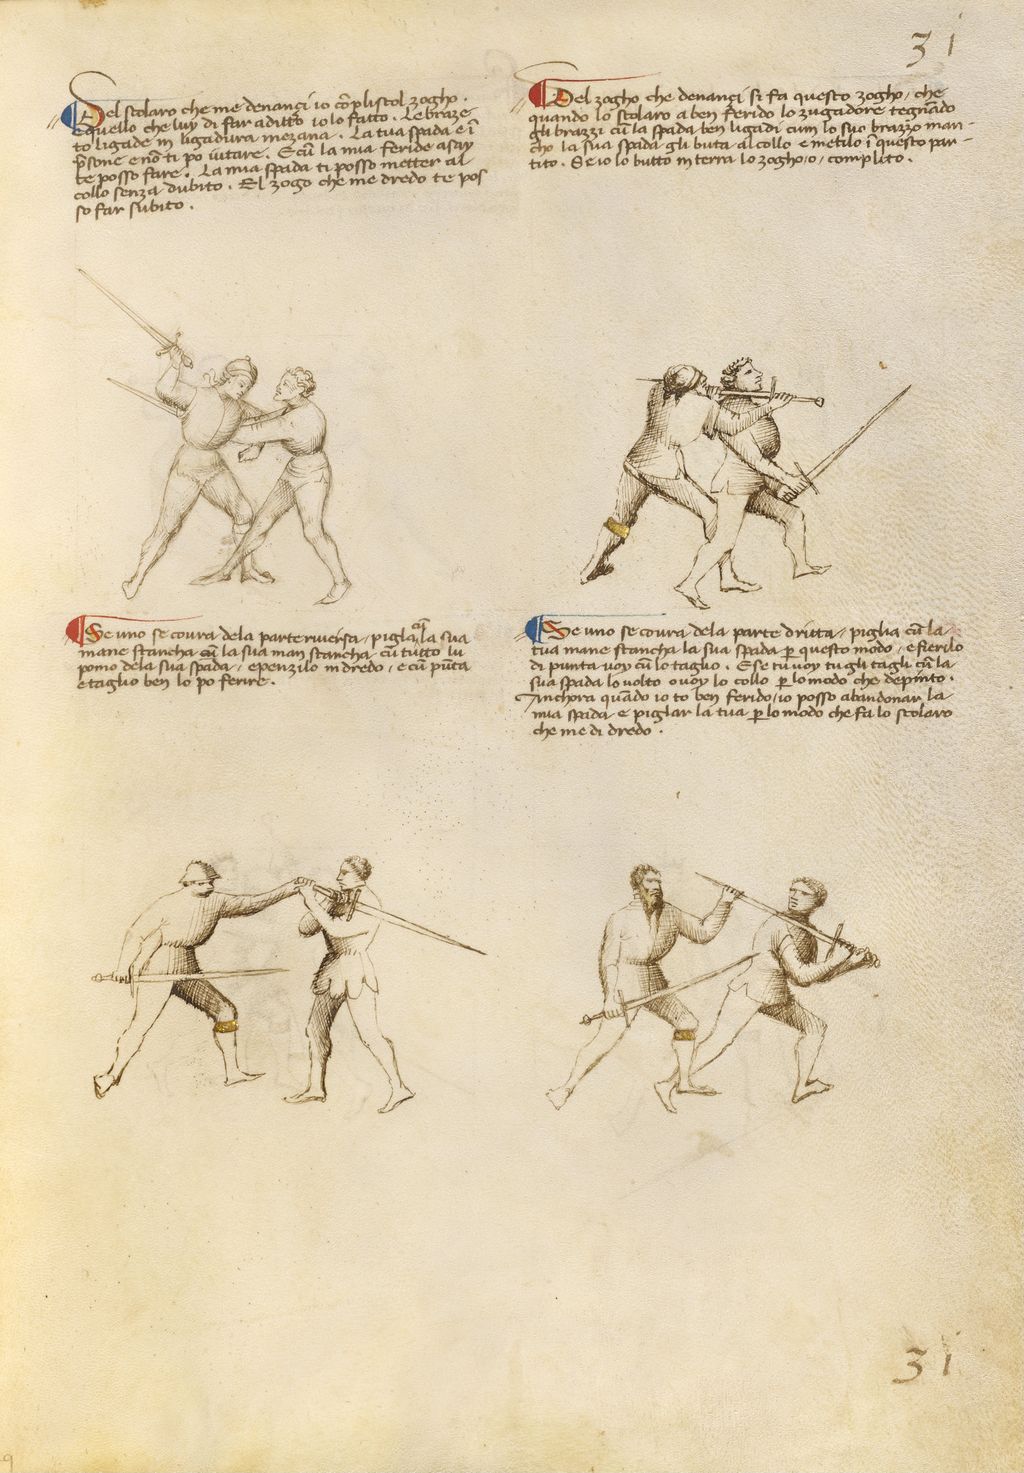 31
Del scolaro che me denançi io cõplistol zogho.
e quello che luy di far aditto io lo fatto. Le braze
to ligade in ligadura mezana. La tua spada e ĩ
p̃sone e nõ ti po iutare. E cũ la mia feride asay
te posso fare. La mia spada ti posso metter al
collo senza dubito. El zogo che me dredo te pos
so far subito.
Del zogho che denançi si fa questo zogho, che
quando lo scolaro a ben ferido lo zugadore tegnãdo
gli brazzi cũ la spada ben ligadi cum lo suo brazzo man-
cho la sua spada gli buta al collo e metilo ĩ questo par-
tito. Se io lo butto in terra lo zogho/o/ complito.
Se uno se covra dela parte riversa, pigla cũ la sua
mane stancha cũ la sua man stancha cũ tutto lu
pomo dela sua spada, e penzilo in dredo, e cũ pũta
e taglio ben lo po ferire.
Se uno se covra dela parte driita, piglia cũ la
tua mane stancha la sua spada p questo modo, e fierilo
di punta voy cũ lo taglio. E se tu voy tu gli tagli cũ la
sua spada lo volto o voy lo collo p lo modo che depinto.
Anchora quãdo io to ben ferido, io posso abandonar la
mia spada e piglar la tua p lo modo che fa lo scolaro
che me di dredo.
31